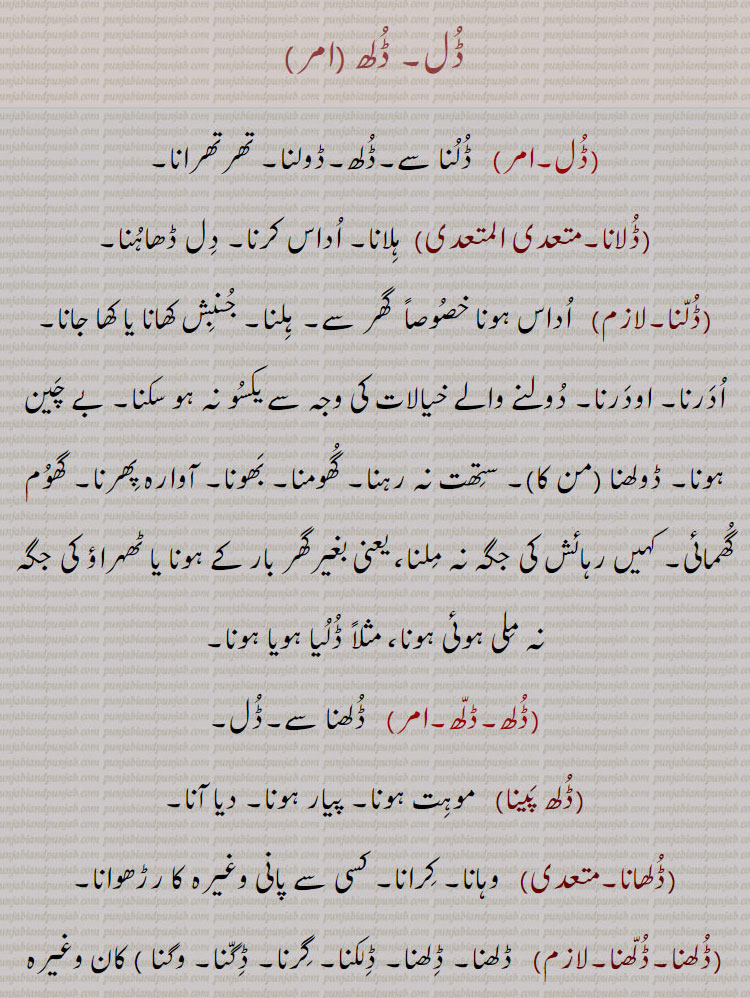 ڈُل۔ ڈُلھ (امر)
(ڈُل۔امر) ڈُلُنا سے۔ڈُلھ۔ڈولنا۔ تھرتھرانا۔
(ڈُلانا۔متعدی المتعدی) ہِلانا۔ اُداس کرنا۔ دِل ڈھاہُنا۔
(ڈُلّنا۔لازم) اُداس ہونا خصُوصاً گھر سے۔ ہِلنا۔ جُنبِش کھانا یا کھا جانا۔
اُدَرنا۔ اودَرنا۔ دُولنے والے خیالات کی وجہ سے یکسُو نہ ہو سکنا۔ بے چَین
ہونا۔ ڈولھنا (من کا)۔ ستِھت نہ رہنا۔ گُھومنا۔ بَھونا۔ آوارہ پِھرنا۔ گھوُم
گُھمائی۔ کہیں رہائش کی جگہ نہ مِلنا، یعنی بغیر گھر بار کے ہونا یا ٹھہراؤ کی جگہ
نہ مِلی ہوئی ہونا، مثلاً ڈُلُیا ہویا ہونا۔
(ڈُلھ۔ڈلّھ۔امر) ڈُلھنا سے۔ڈُل۔
(ڈُلھ پَینا) موہِت ہونا۔ پیار ہونا۔ دیا آنا۔
(ڈُلھانا۔متعدی) وہانا۔ کِرانا۔ کسی سے پانی وغیرہ کا رڑھوانا۔
(ڈُلھنا۔ڈُلّھنا۔لازم) ڈلھنا۔ ڈِلھنا۔ ڈِلکنا۔ گِرنا۔ ڈِگنّا۔ وگنا ) کان وغیرہ